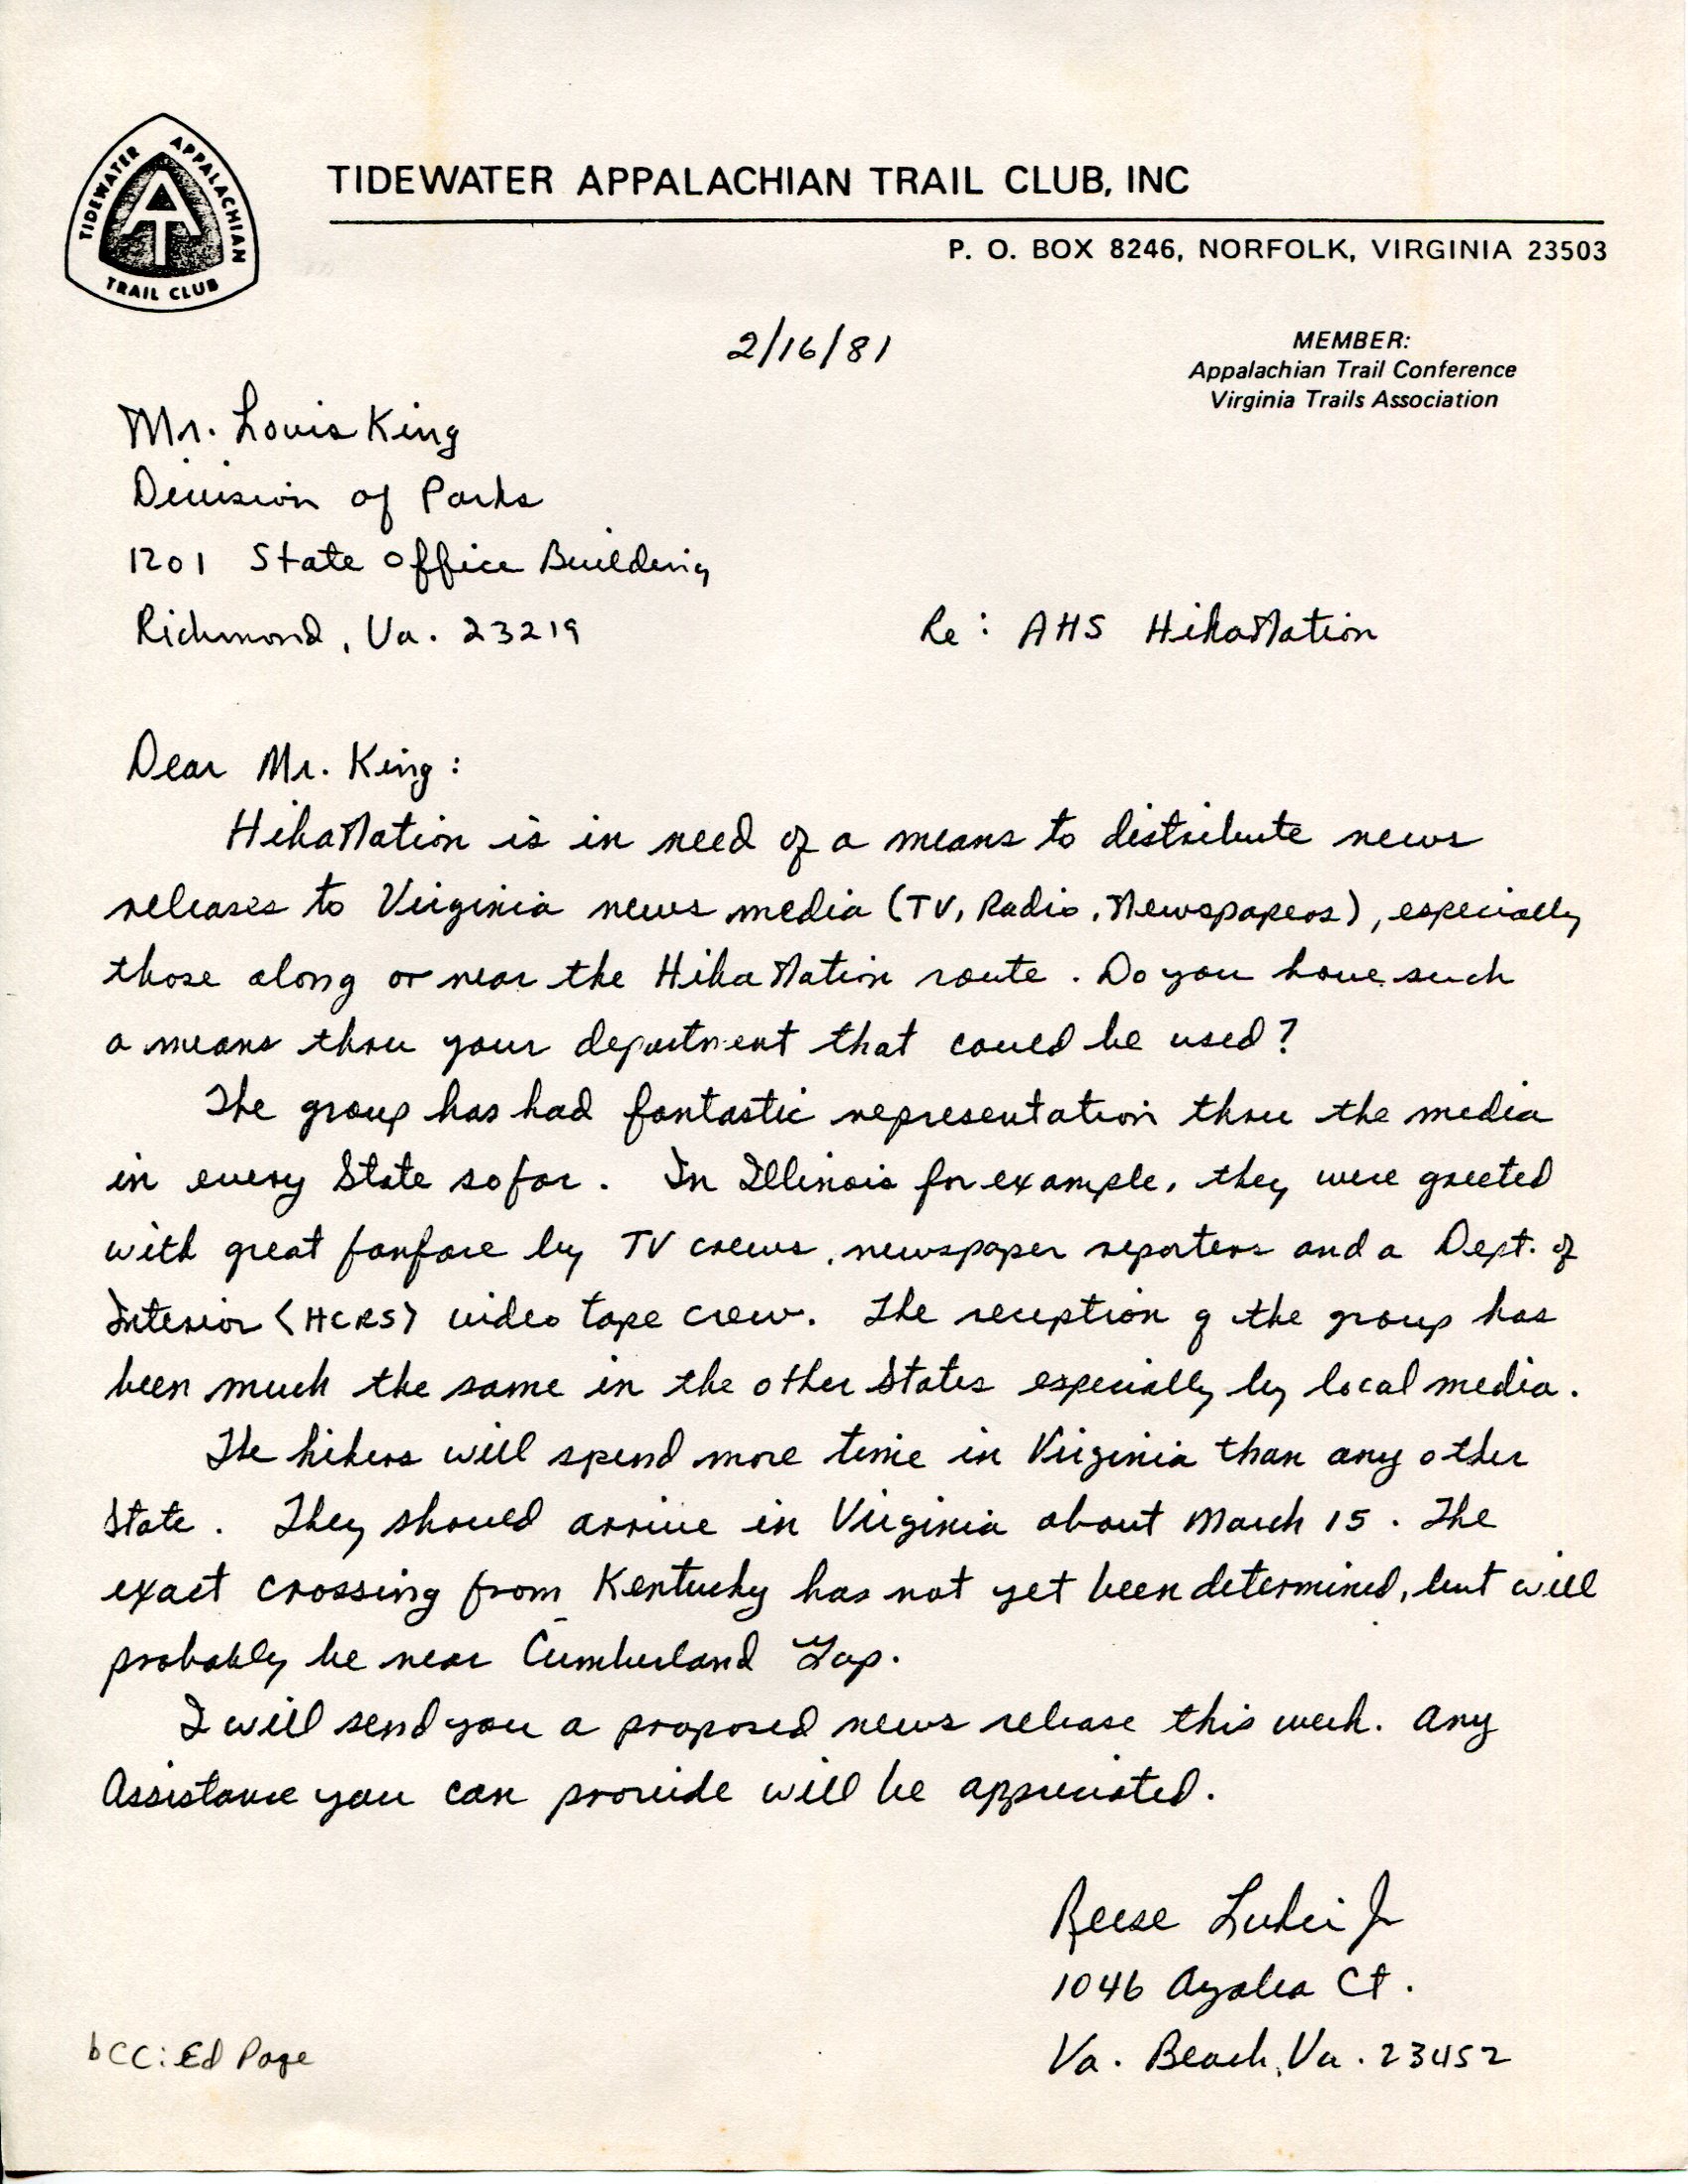 TIDEWATER APPALACHIAN TRAIL CLUB
AT
TIDEWATER APPALACHIAN TRAIL CLUB, INC
P. O. BOX 8246, NORFOLK, VIRGINIA 23503
2/16/81
MEMBER:
Appalachian Trail Conference
Virginia Trails Association
Mr. Louis King
Division of Parks
1201 State Office Building
Richmond, Va. 23219
Re: AHS HikaNation
Dear Mr. King:
HikaNation is in need of a means to distribute news
releases to Virginia news media (TV, Radio, Newspapers), especially
those along or near the HikaNation route. Do you have such
a means thru your department that could be used?
The group has had fantastic representation thru the media
in every State so far. In Illinois for example, they were greeted
with great fanfare by TV crews, newspaper reporters and a Dept. of
Interior (HCRS) video tape crew. The reception of the group has
been much the same in the other States especially by local media.
The hikers will spend more time in Virginia than any other
State. They should arrive in Virginia about March 15. The
exact crossing from Kentucky has not yet been determined, but will
probably be near Cumberland Gap.
I will send you a proposed news release this week. Any
Assistance you can provide will be appreciated.
Reese Lukei Jr
1046 Azalea Ct.
Va. Beach, Va. 23452
bCC: Ed Page